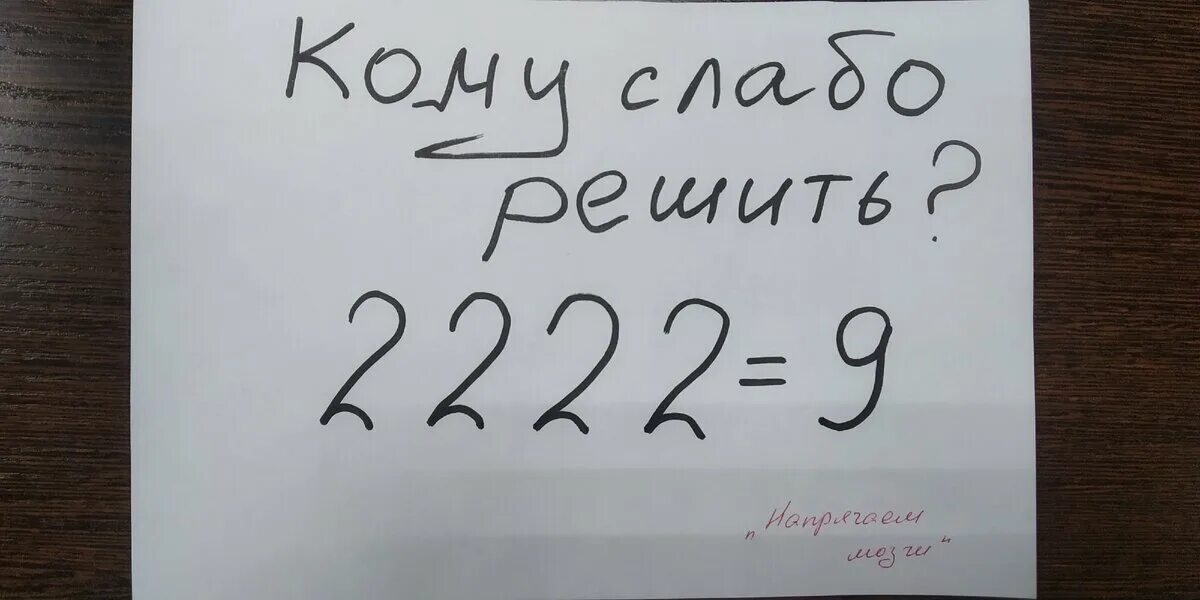 Кому слабо
решить?
2222=9
"Напрягаем
мозги"